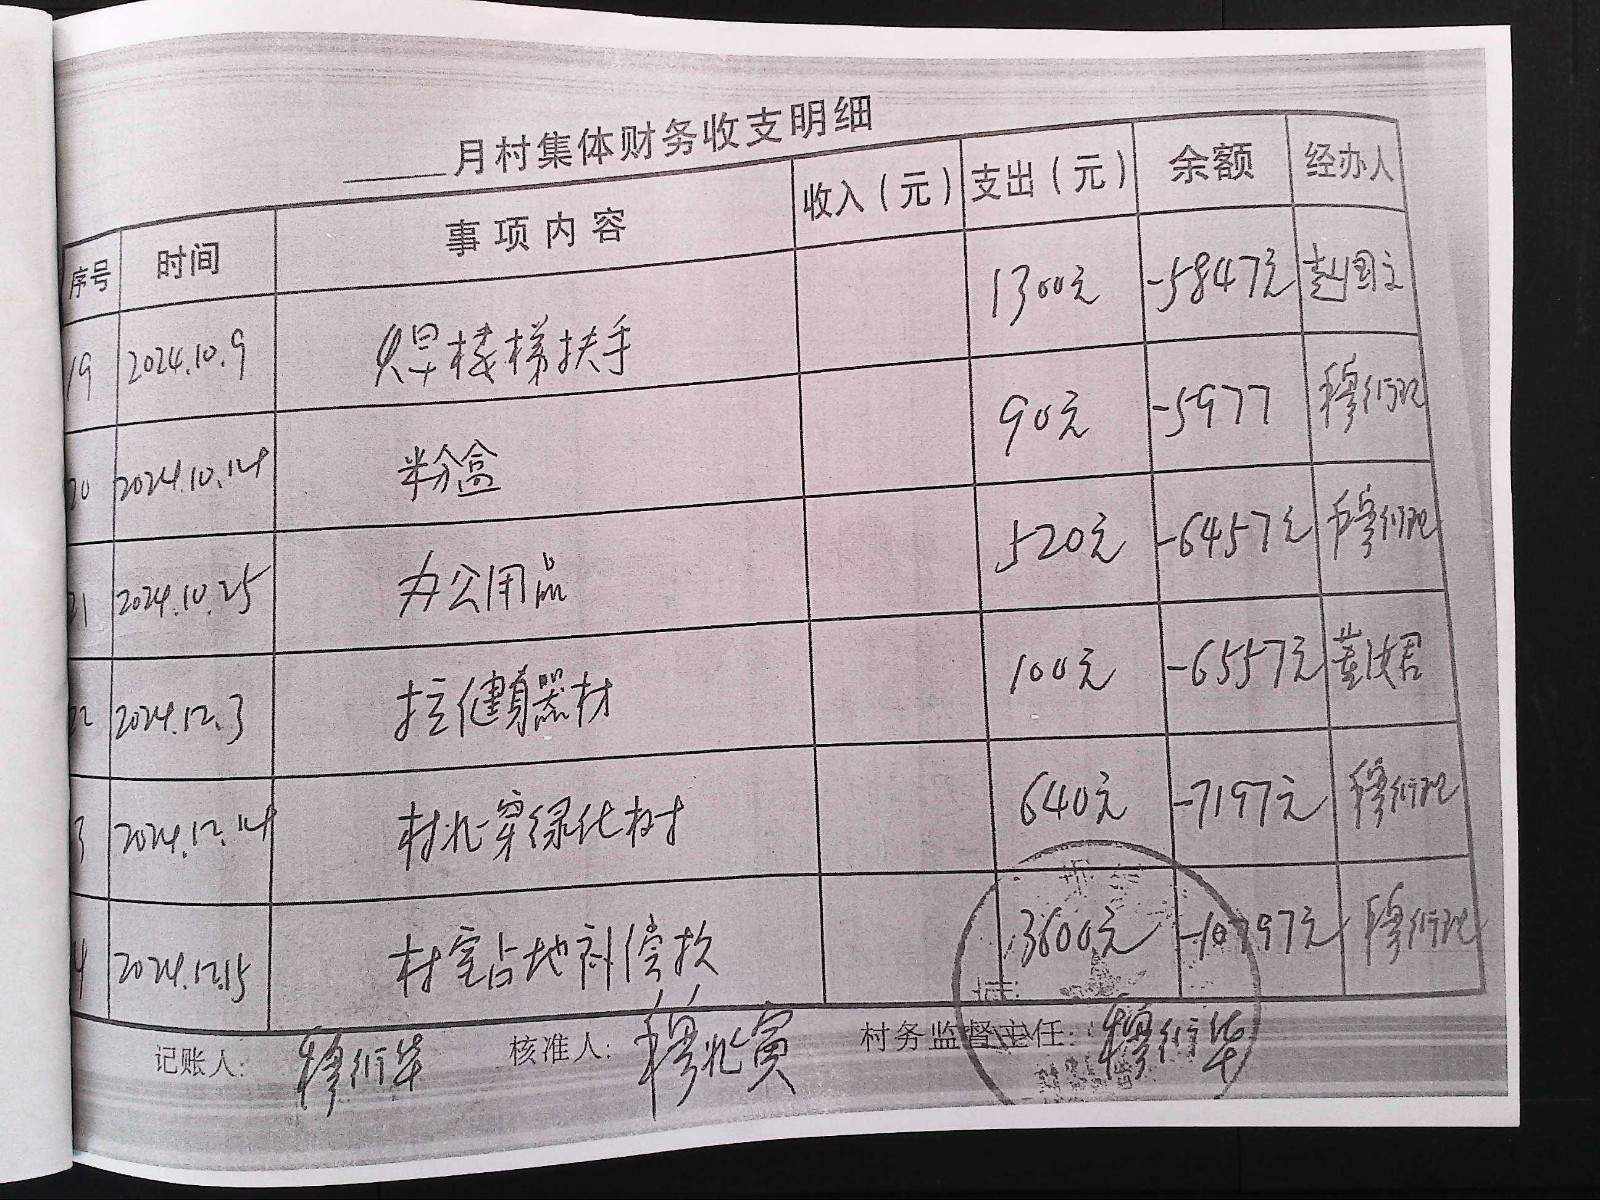 月村集体财务收支明细
序号 时间 事项内容 收入（元） 支出（元） 余额 经办人
19 2024.10.9 焊楼梯扶手 1300元 -5847元 赵国立
20 2024.10.14 粉盒 90元 -5977 穆衍现
21 2024.10.25 办公用品 520元 -6457元 穆衍现
22 2024.12.3 拉健身器材 100元 -6557元 董汝君
3 2024.12.14 村北穿绿化树 640元 -7197元 穆衍现
4 2024.12.15 村室占地补偿款 3600元 -10797元 穆衍现
记账人： 穆衍华 核准人： 穆兆寅 村务监督主任： 穆衍华